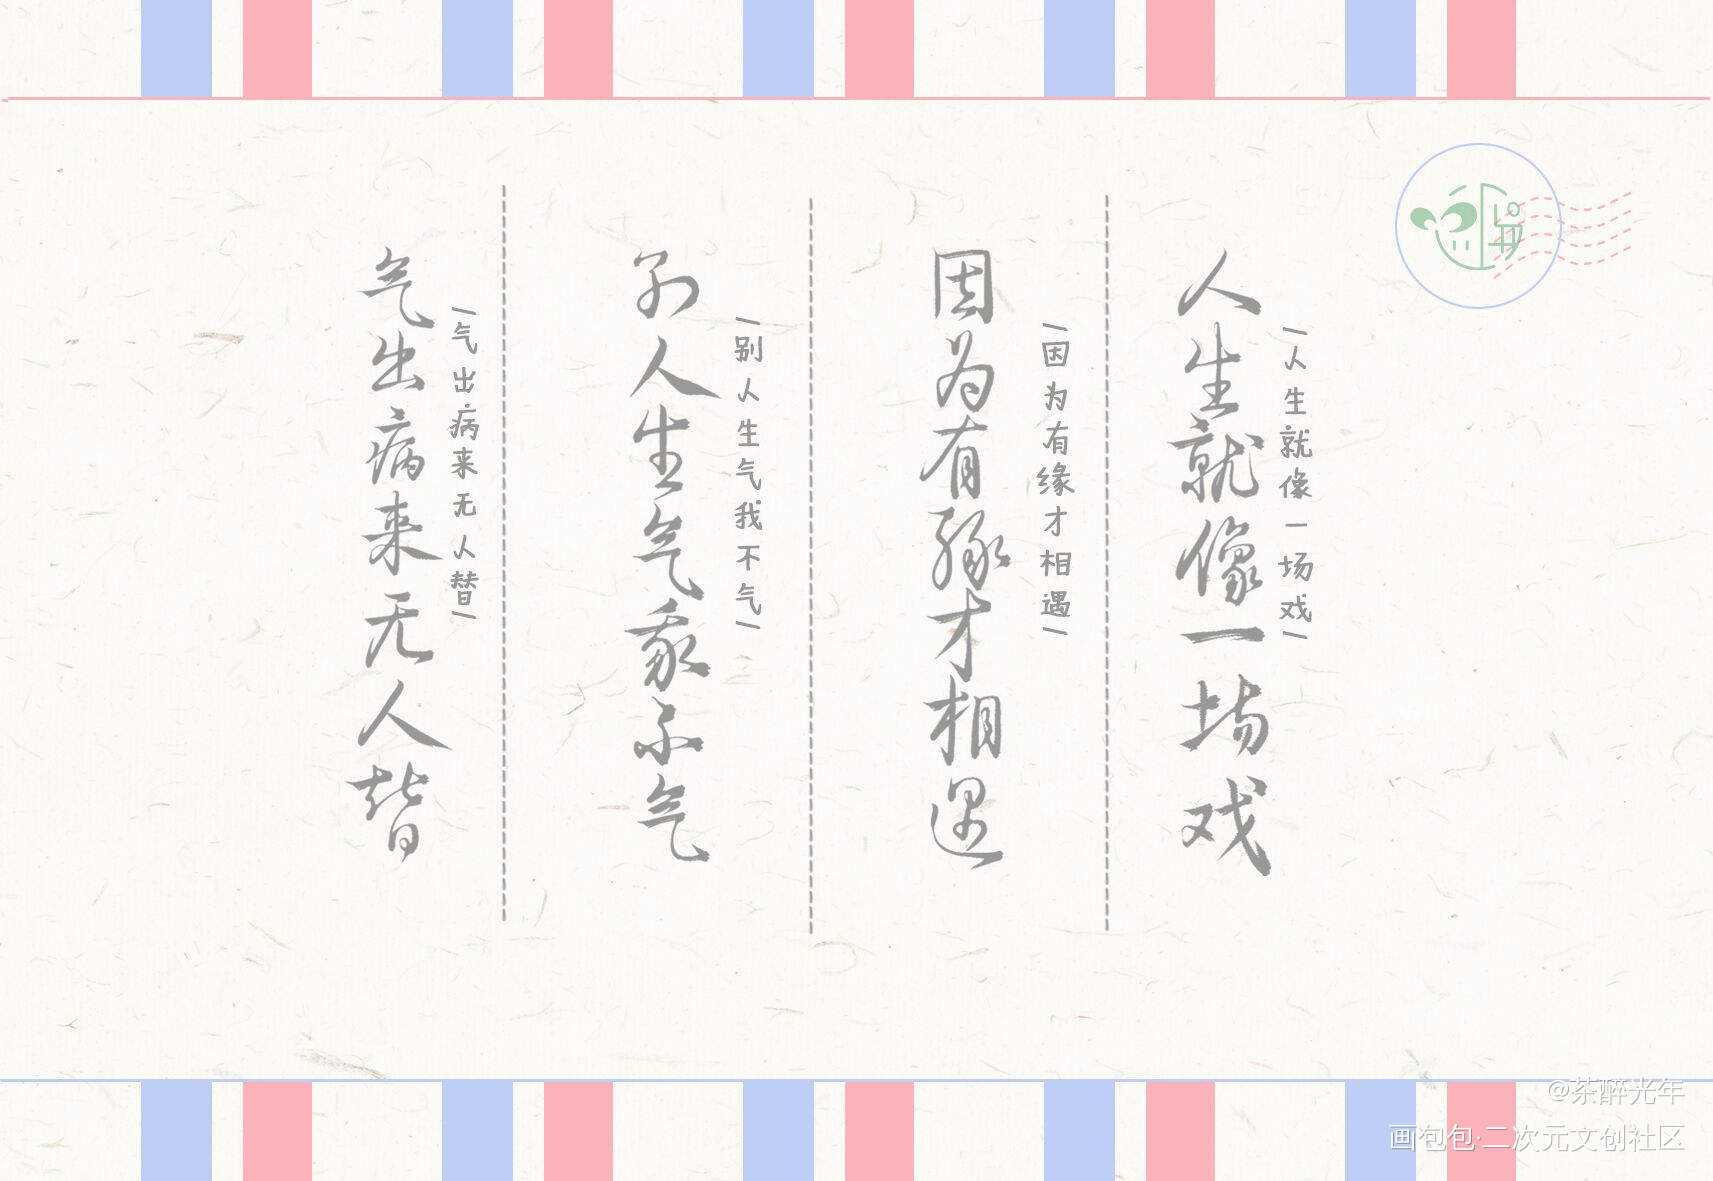 人生就像一场戏
人生就像一场戏
因为有缘才相遇
因为有缘才相遇
别人生气我不气
别人生气我不气
气出病来无人替
气出病来无人替
@茶醉光年
画包包·二次元文创社区